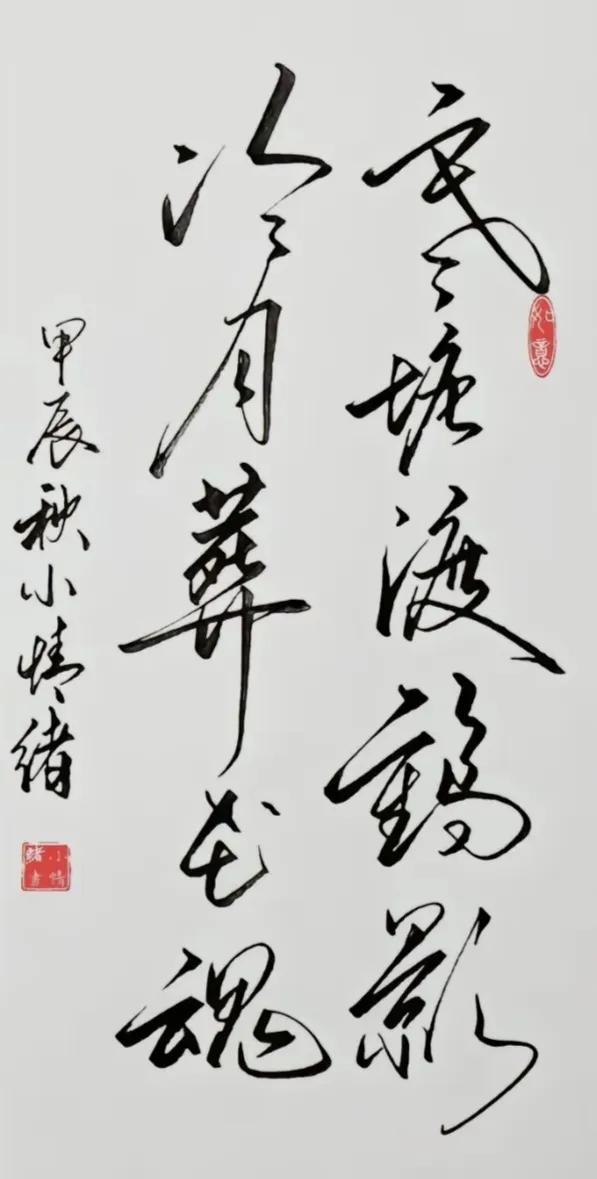 寒塘渡鹤影
如意
冷月葬花魂
甲辰秋小情绪
小情绪书